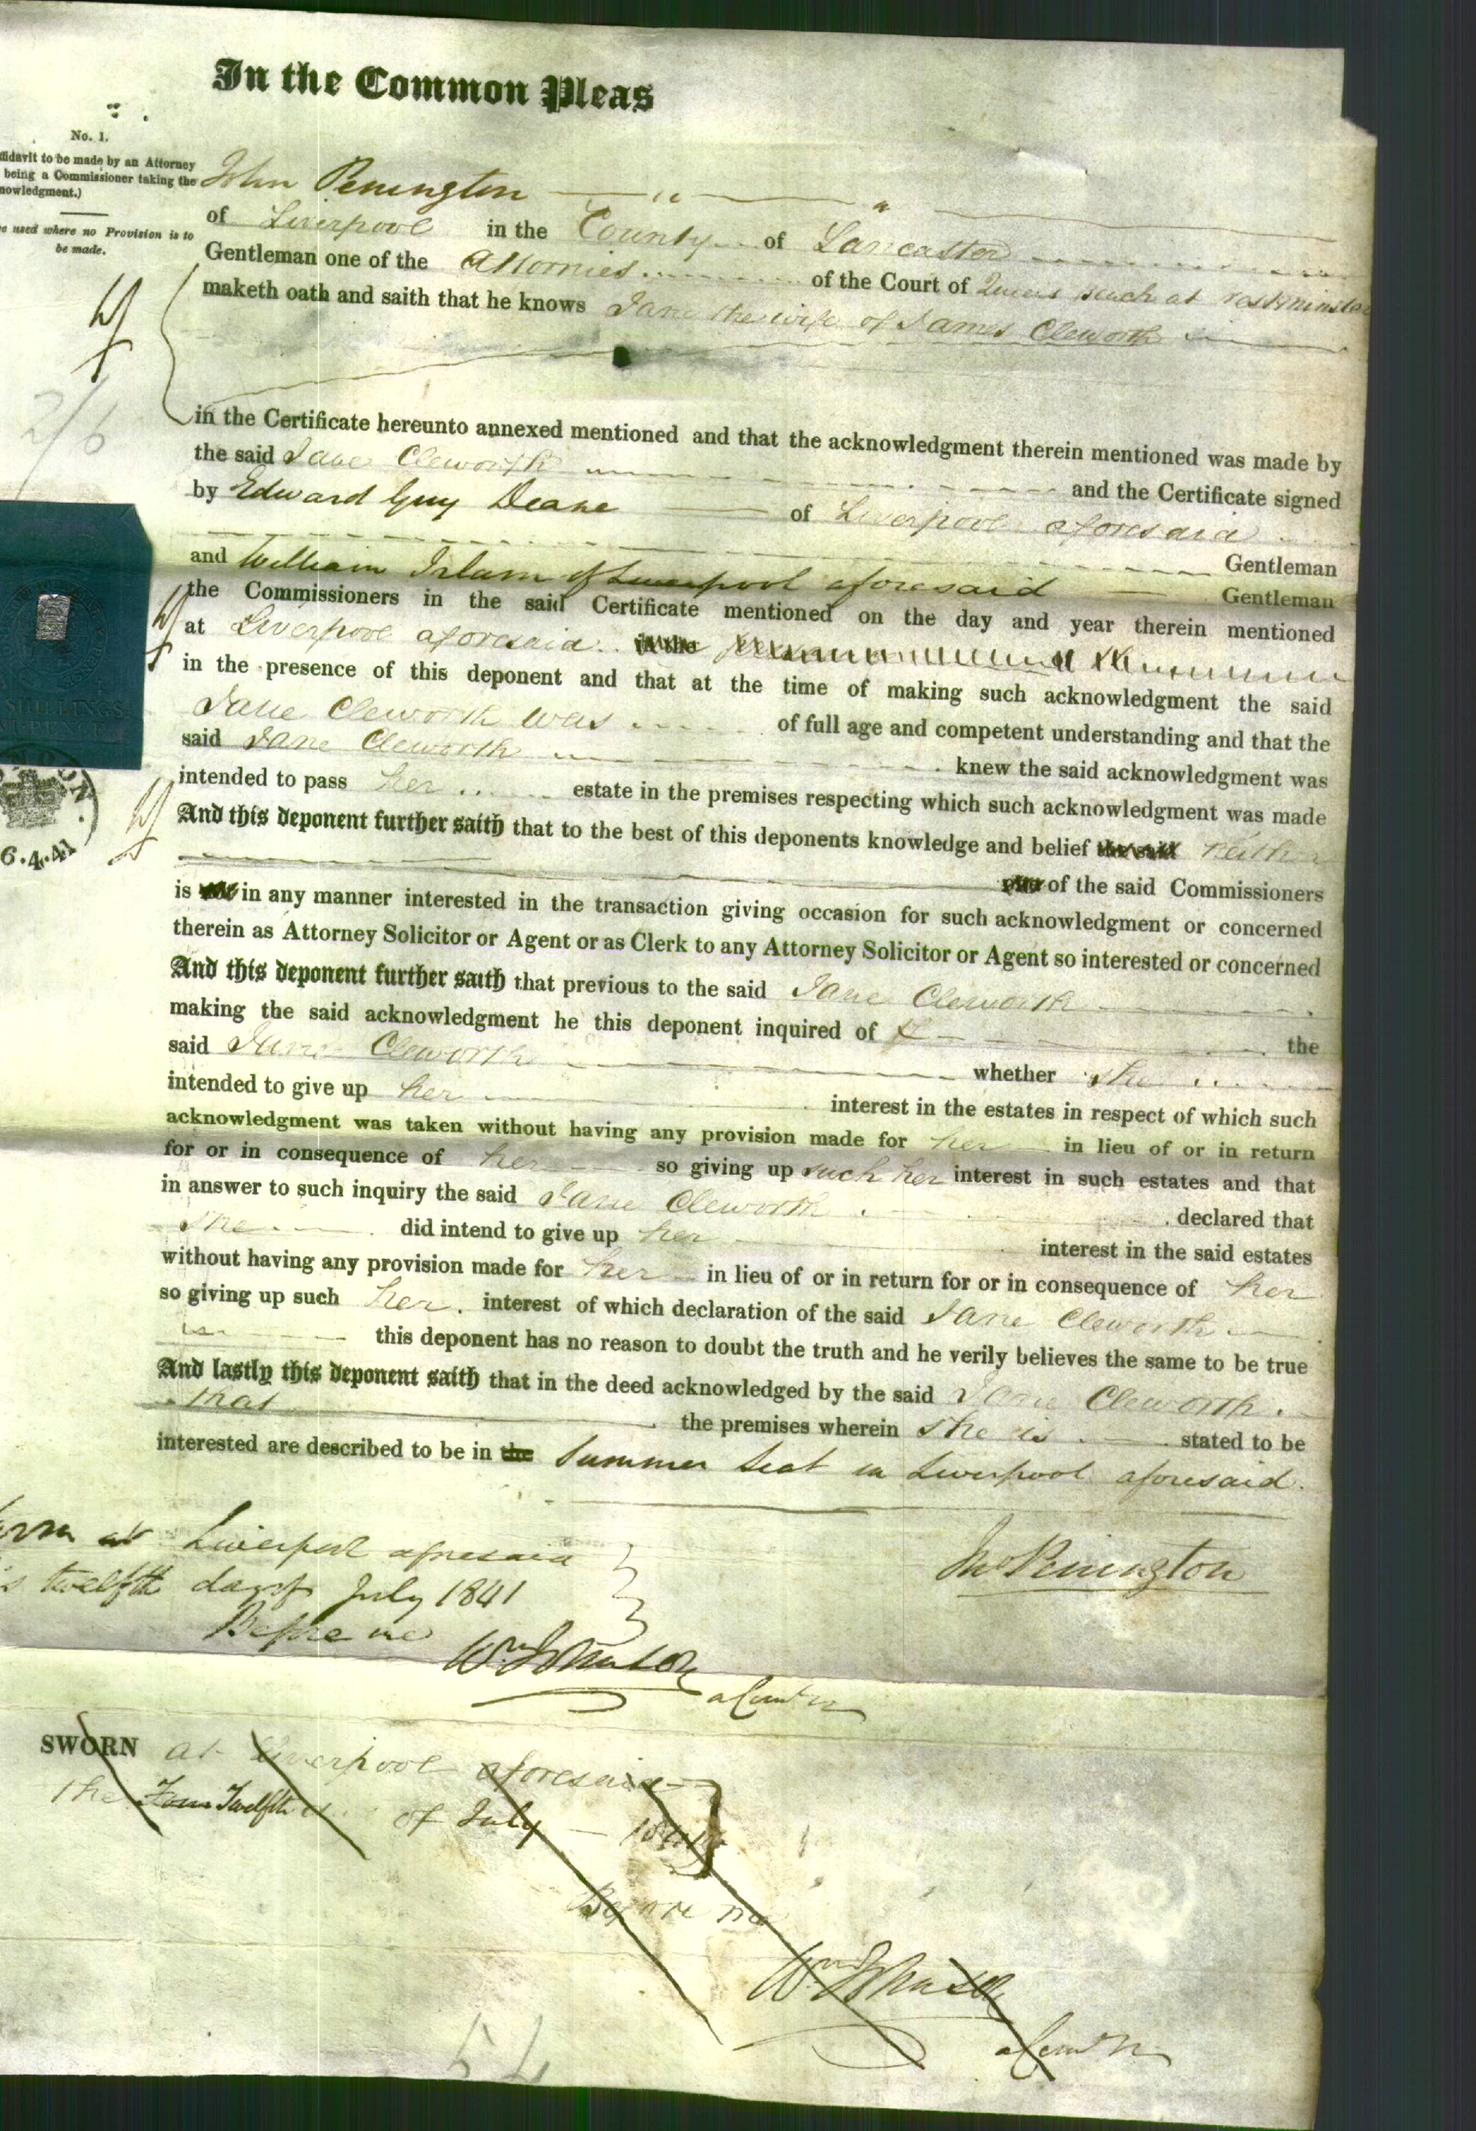 In the Common Pleas
No. 1.
ffidavit to be made by an Attorney
being a Commissioner taking the
nowledgment.)
e used where no Provision is to
be made.
John Penington
of Liverpool in the County of Lancaster
Gentleman one of the Attornies of the Court of Queens Bench at Westminster
maketh oath and saith that he knows Jane the wife of James Cleworth
2/6
in the Certificate hereunto annexed mentioned and that the acknowledgment therein mentioned was made by
the said Jane Cleworth and the Certificate signed
by Edward Guy Deane of Liverpool aforesaid
Gentleman
and William Islam of Liverpool aforesaid Gentleman
the Commissioners in the said Certificate mentioned on the day and year therein mentioned
at Liverpool aforesaid in the
in the presence of this deponent and that at the time of making such acknowledgment the said
Jane Cleworth was of full age and competent understanding and that the
said Jane Cleworth knew the said acknowledgment was
intended to pass her estate in the premises respecting which such acknowledgment was made
And this deponent further saith that to the best of this deponents knowledge and belief neither
of the said Commissioners
is in any manner interested in the transaction giving occasion for such acknowledgment or concerned
therein as Attorney Solicitor or Agent or as Clerk to any Attorney Solicitor or Agent so interested or concerned
And this deponent further saith that previous to the said Jane Cleworth
making the said acknowledgment he this deponent inquired of the
said Jane Cleworth whether she
intended to give up her interest in the estates in respect of which such
acknowledgment was taken without having any provision made for her in lieu of or in return
for or in consequence of her so giving up such her interest in such estates and that
in answer to such inquiry the said Jane Cleworth declared that
she did intend to give up her interest in the said estates
without having any provision made for her in lieu of or in return for or in consequence of her
so giving up such her interest of which declaration of the said Jane Cleworth
is this deponent has no reason to doubt the truth and he verily believes the same to be true
And lastly this deponent saith that in the deed acknowledged by the said Jane Cleworth
that the premises wherein she is stated to be
interested are described to be in the Summer Seat in Liverpool aforesaid.
orn at Liverpool aforesaid
s twelfth day of July 1841
Before me
Jno Penington
Wm Johnson
a Comr
6.4.41
SWORN at Liverpool aforesaid
the Twelfth of July 1841
Before me
Wm Johnson
a Comr
54